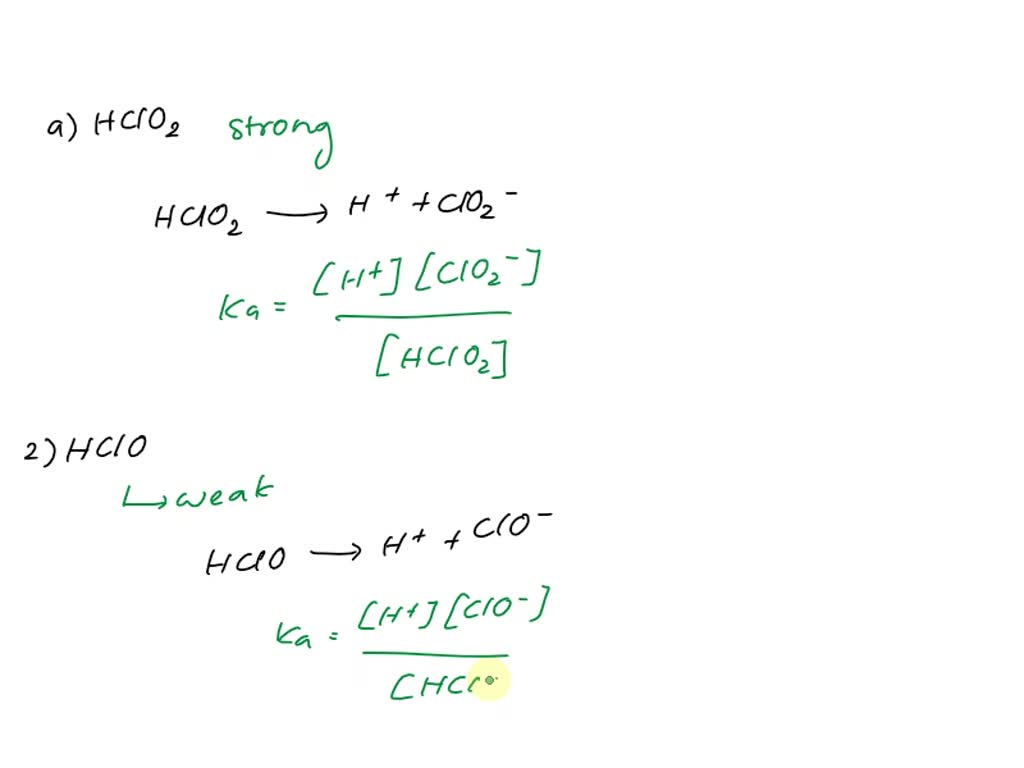 a) HClO₂ strong
HClO₂ ⟶ H⁺ + ClO₂⁻
Ka = [H⁺] [ClO₂⁻]
[HClO₂]
2) HClO
↳ weak
HClO ⟶ H⁺ + ClO⁻
Ka = [H⁺] [ClO⁻]
[HCl